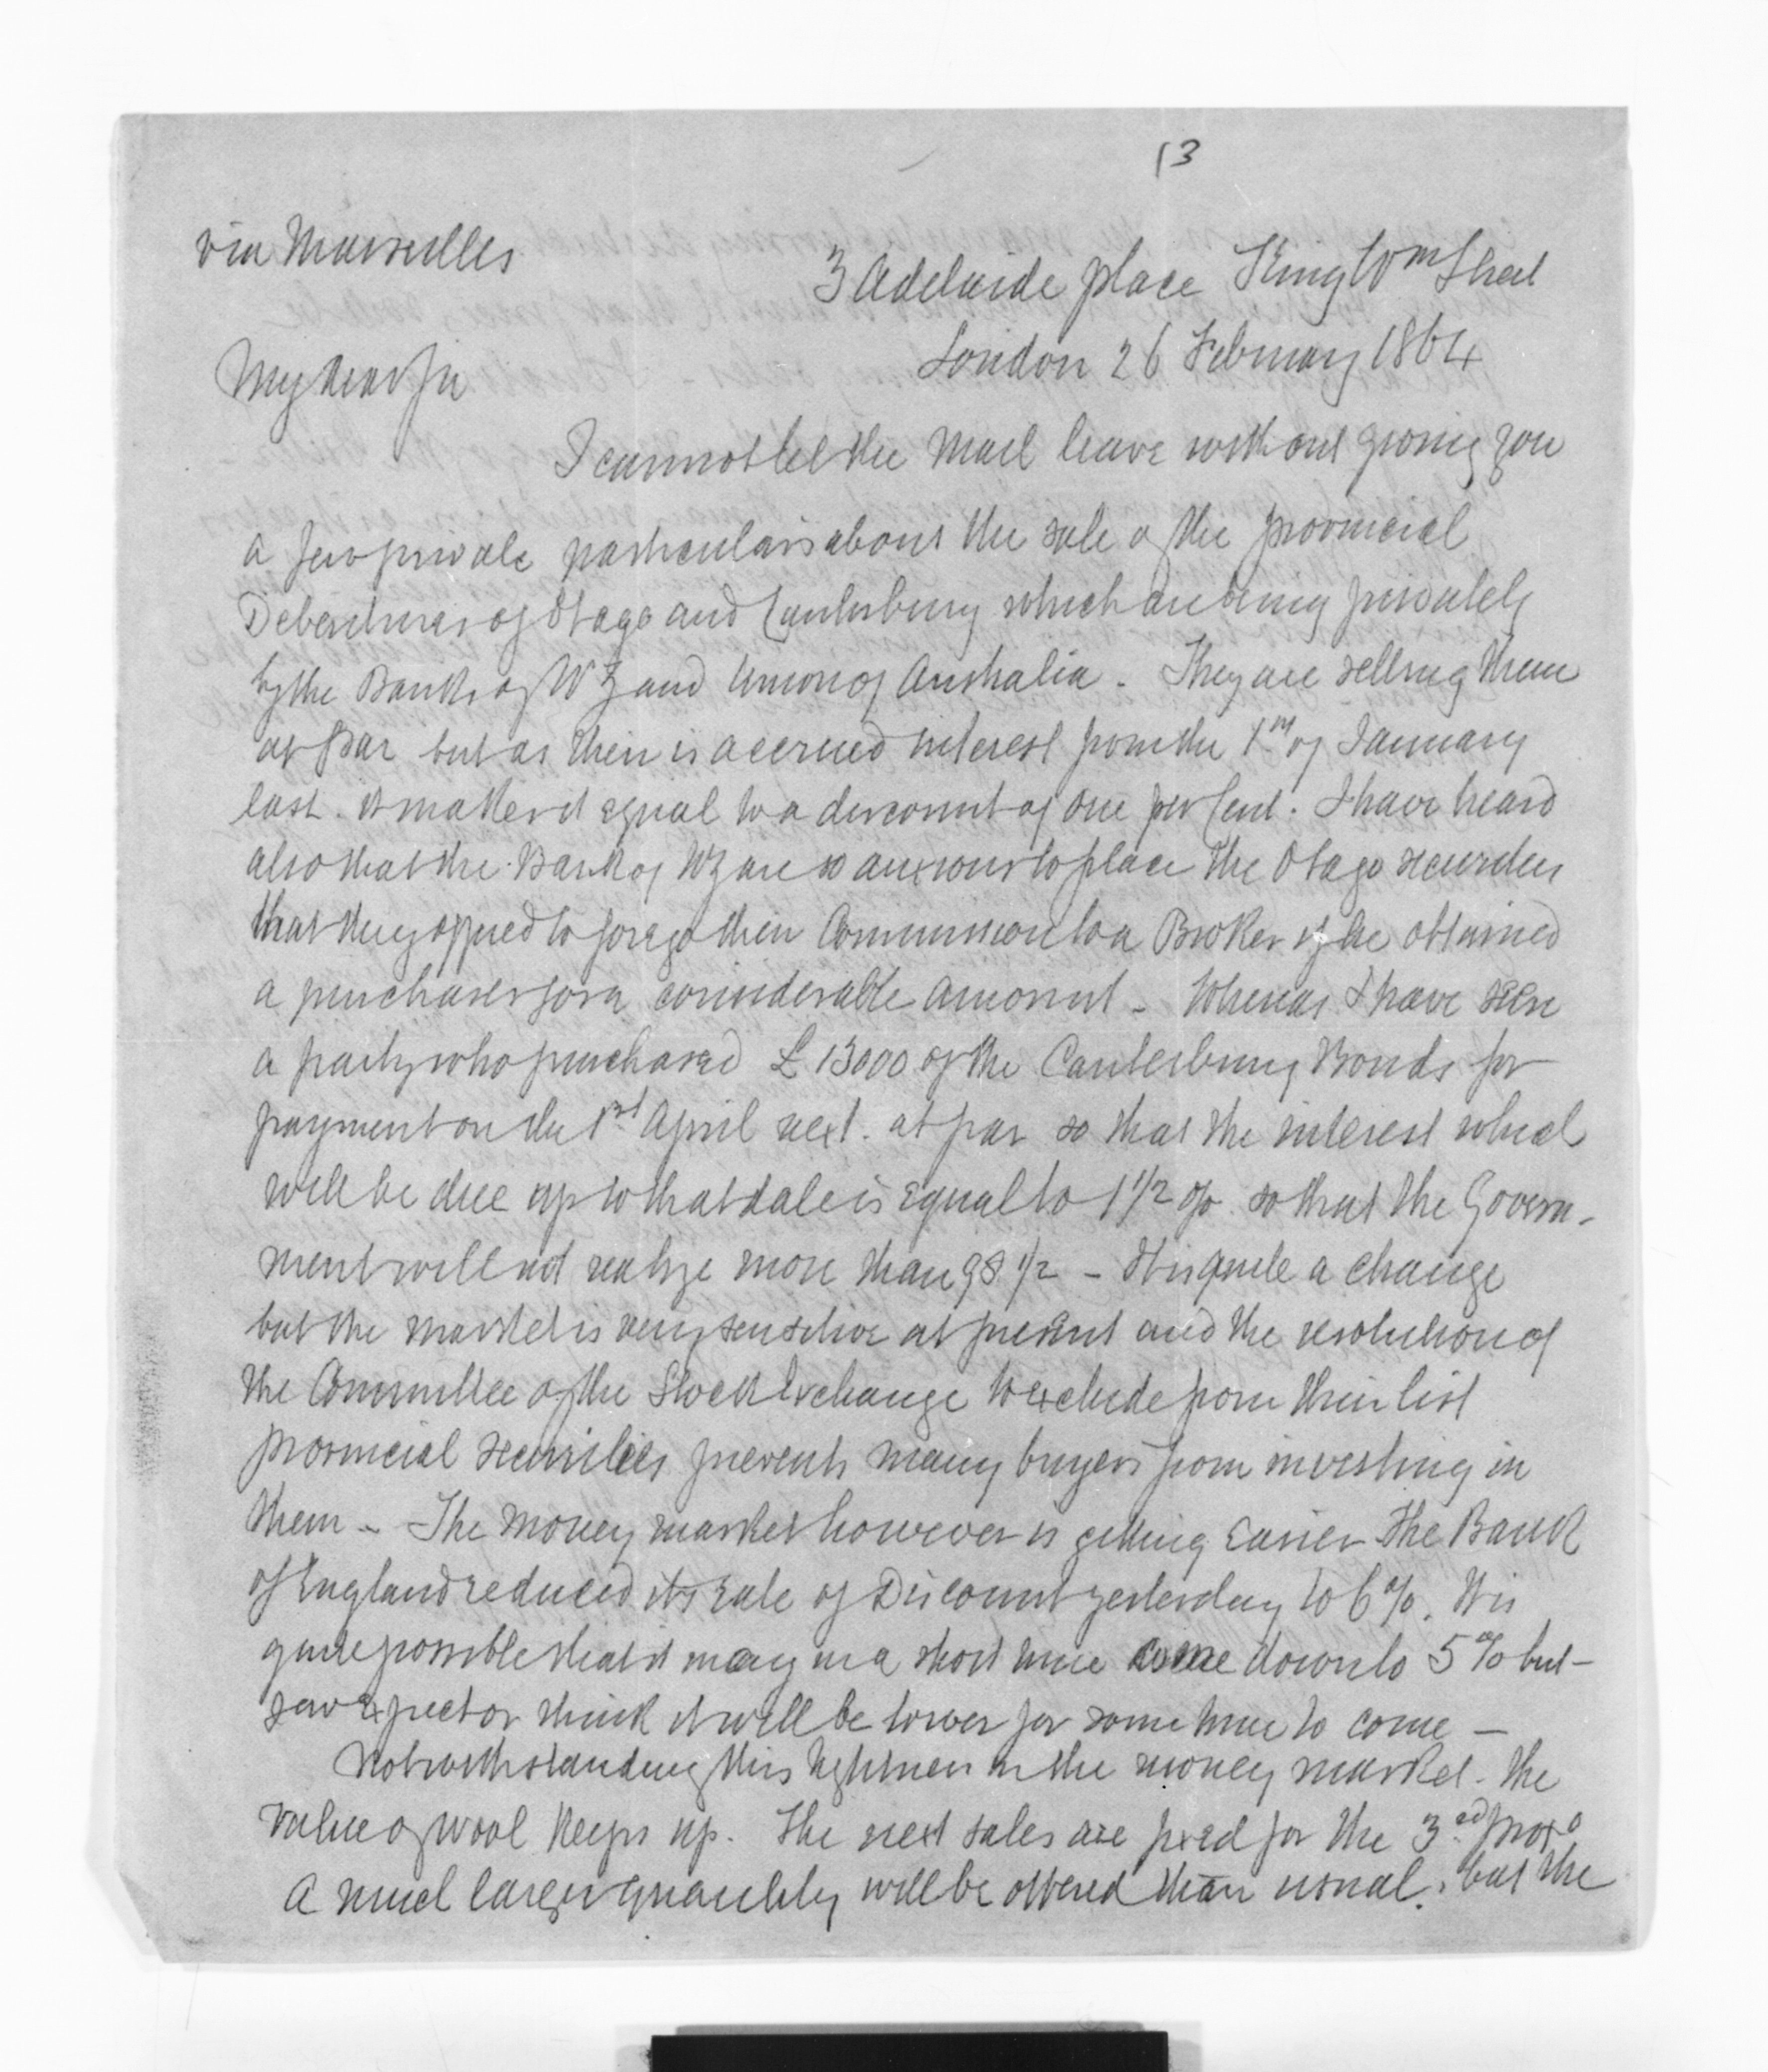 13
via Marseilles
3 Adelaide place King Wm Street
London 26 February 1864
My dear Sir
I cannot let the Mail leave without giving you
a few private particulars about the sale of the provincial
Debentures of Otago and Canterbury which are being privately
by the Banks of NZ and Union of Australia - They are selling them
at Par but as there is accrued interest from the 1st of January
last. it makes it equal to a discount of one per Cent. I have heard
also that the Bank of NZ are so anxious to place the Otago securities
that they offered to forego their Commission to a Broker if he obtained
a purchaser for a considerable amount - Whereas I have seen
a party who purchased £13000 of the Canterbury Bonds for
payment on the 1st April next. at par so that the interest which
will be due up to that date is equal to 1 1/2 % so that the Govern-
ment will not realize more than 98 1/2 - It is quite a change
but the market is very sensitive at present and the resolution of
the Committee of the Stock Exchange to exclude from their list
provincial securities prevents many buyers from investing in
them - The Money market however is getting easier the Bank
of England reduced its rate of Discount yesterday to 6%. It is
quite possible that it may in a short time come down to 5% but -
few expect or think it will be lower for some time to come -
Notwithstanding this tightness in the money market - the
value of wool keeps up. The next sales are fixed for the 3rd proxo
A much larger quantity will be offered than usual. but the